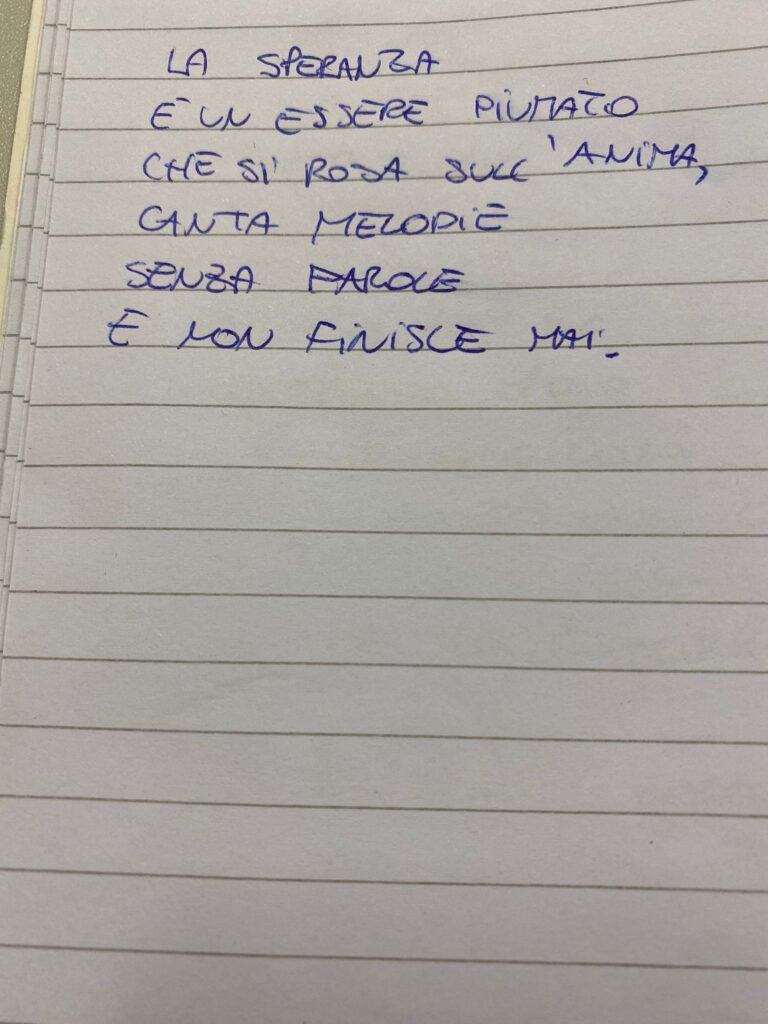 LA SPERANZA
E' UN ESSERE PIUMATO
CHE SI POSA SULL'ANIMA,
CANTA MELODIE
SENZA PAROLE
E NON FINISCE MAI.